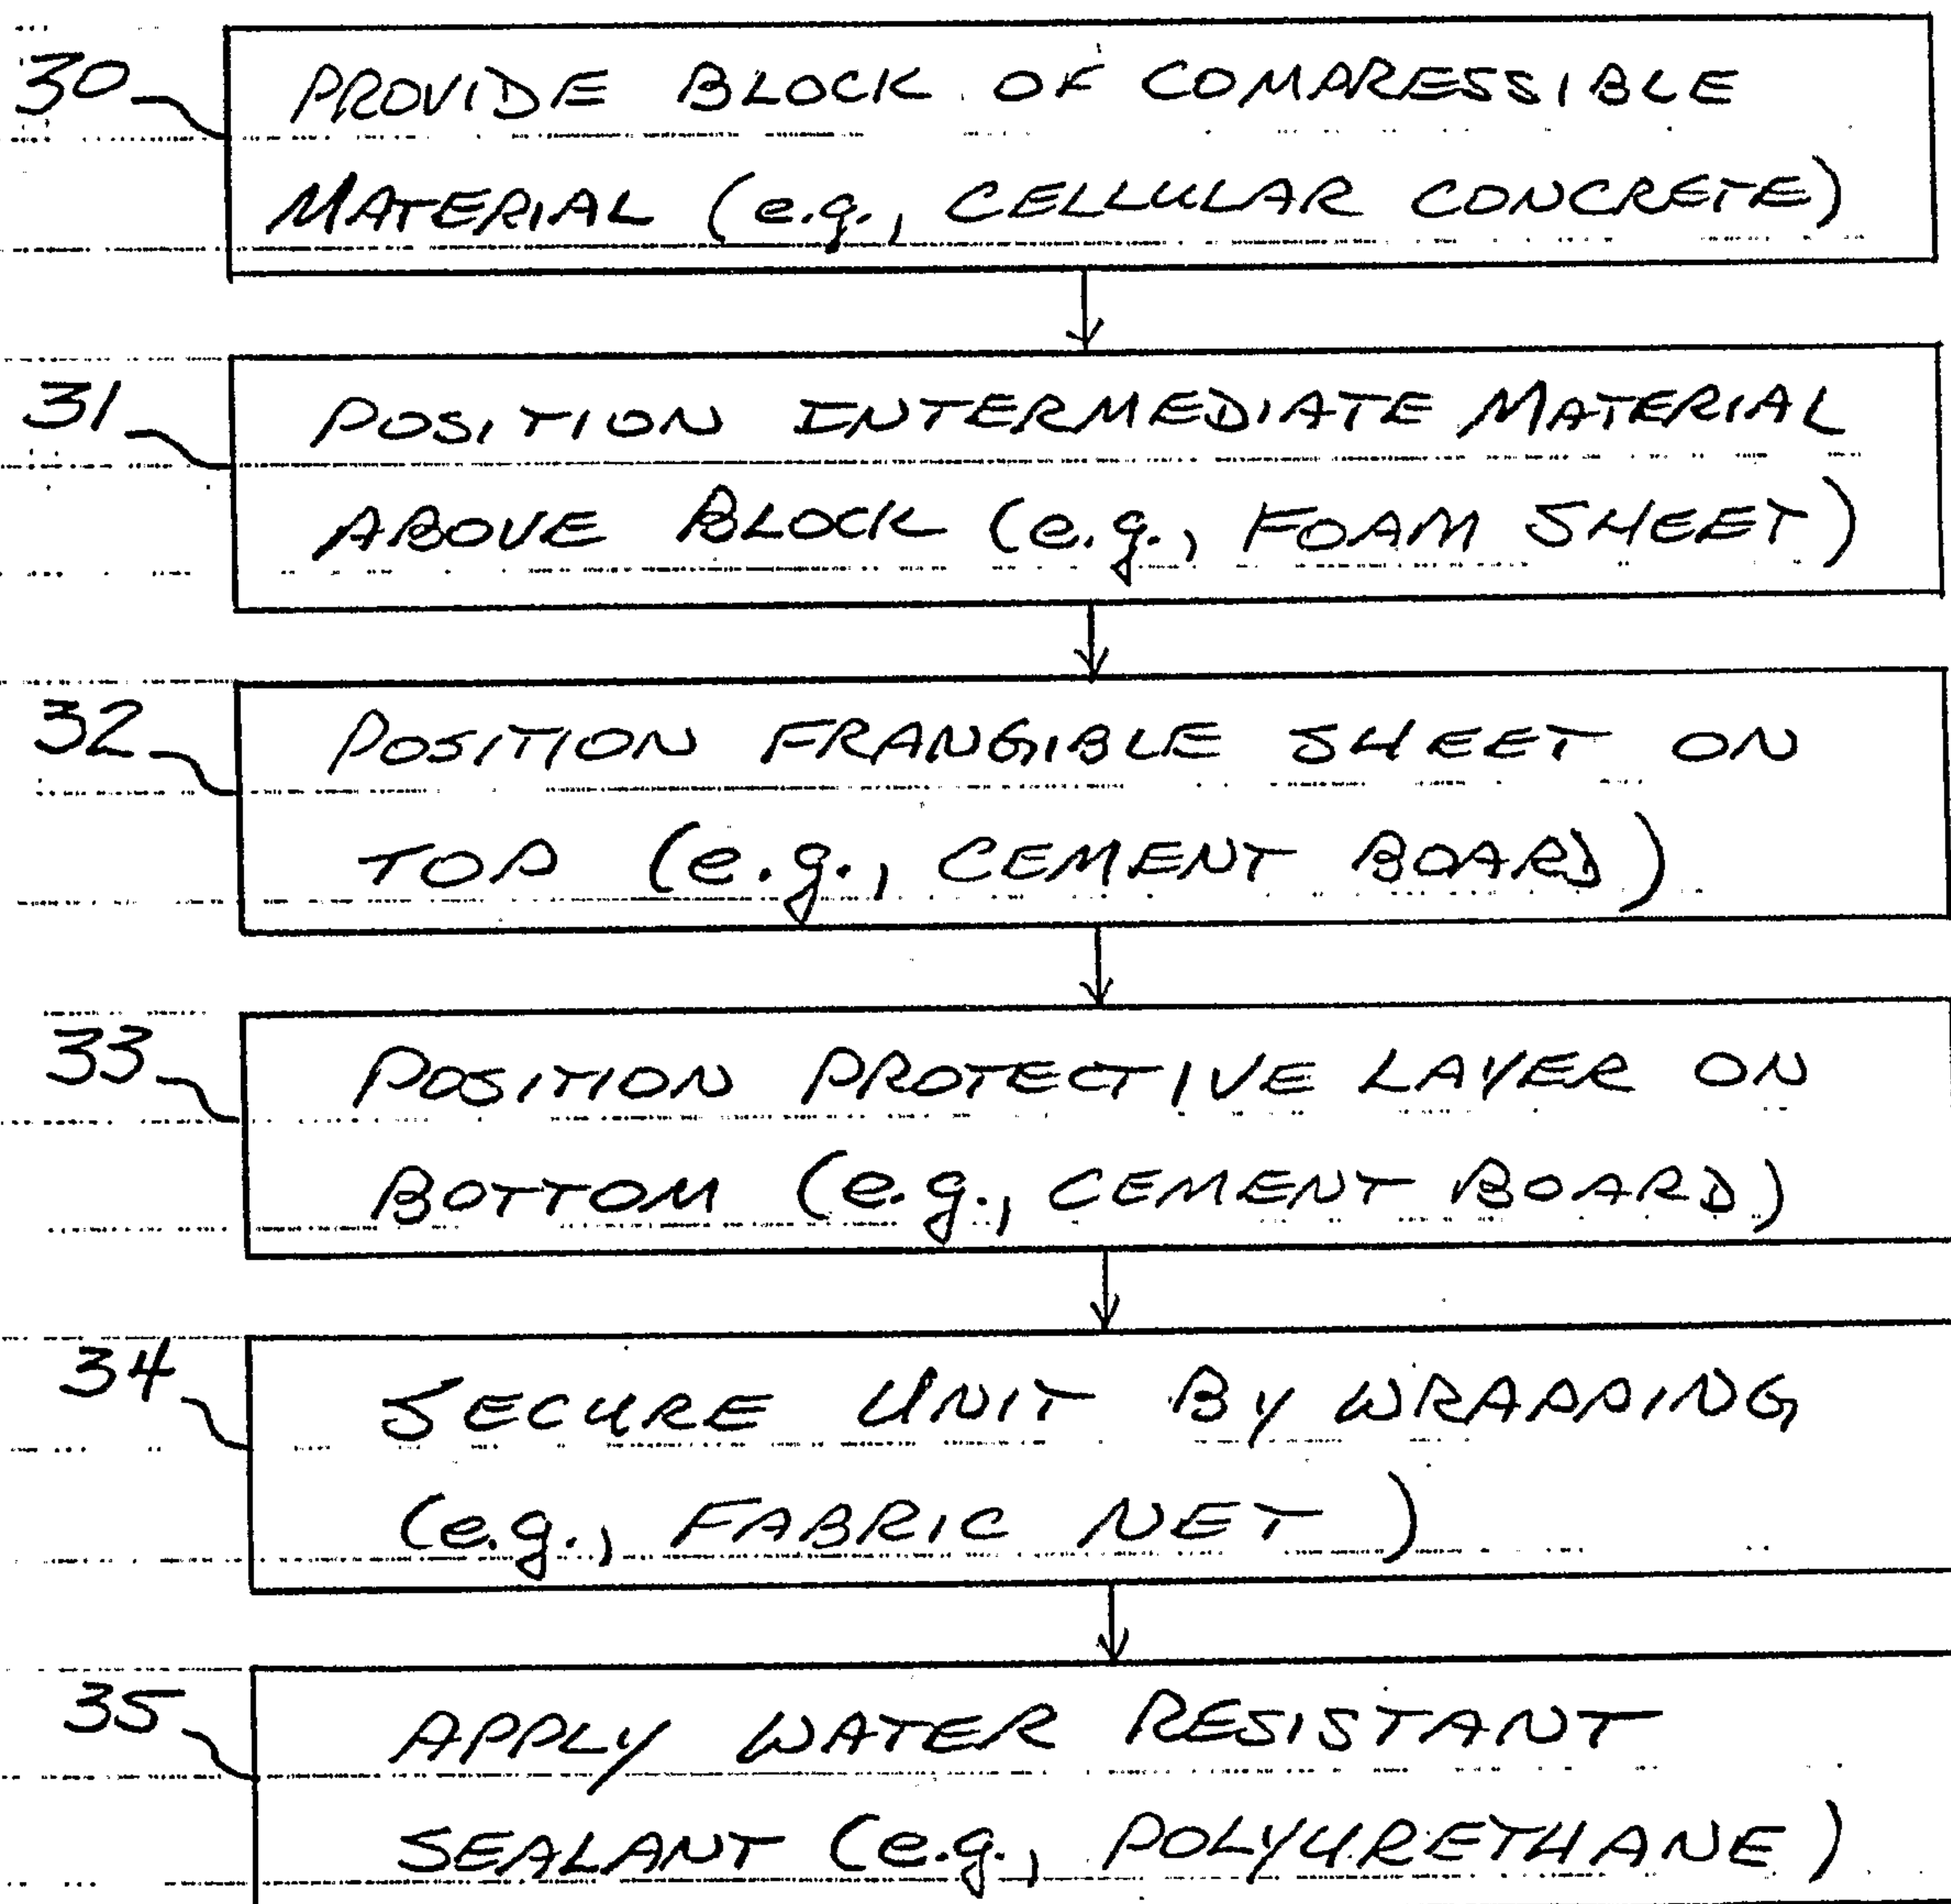 30
PROVIDE BLOCK OF COMPRESSIBLE
MATERIAL (e.g., CELLULAR CONCRETE)
31
POSITION INTERMEDIATE MATERIAL
ABOVE BLOCK (e.g., FOAM SHEET)
32
POSITION FRANGIBLE SHEET ON
TOP (e.g., CEMENT BOARD)
33
POSITION PROTECTIVE LAYER ON
BOTTOM (e.g., CEMENT BOARD)
34
SECURE UNIT BY WRAPPING
(e.g., FABRIC NET)
35
APPLY WATER RESISTANT
SEALANT (e.g., POLYURETHANE)